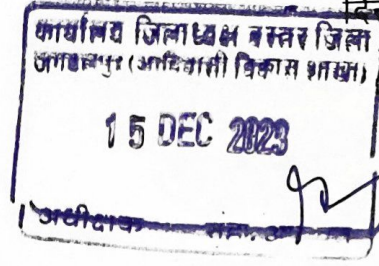 कार्यालय जिलाध्यक्ष बस्तर जिला
जगदलपुर (आदिवासी विकास शाखा)
15 DEC 2023
अधीक्षक